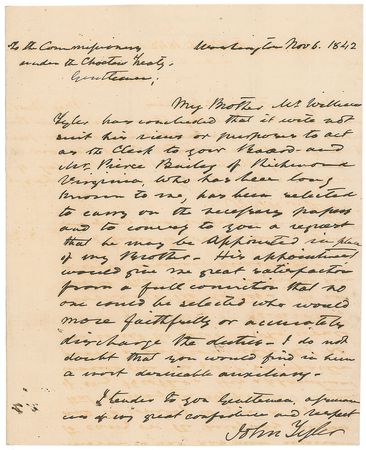 Washington Nov 6. 1842
To the Commissioners
under the Choctaw Treaty.
Gentlemen,
My Brother Mr. William
Tyler has concluded that it will not
suit his views or purposes to act
as the Clerk to your Board - and
Mr. Pierce Bailey of Richmond
Virginia, who has been long
known to me, has been selected
to carry on the necessary papers
and to convey to you a request
that he may be appointed in place
of my Brother - His appointment
would give me great satisfaction
from a full conviction that no
one could be selected who would
more faithfully or accurately
discharge the duties - I do not
doubt that you would find in him
a most desirable auxiliary.
I tender to you Gentlemen, assuran
ces of my great confidence and respect
John Tyler